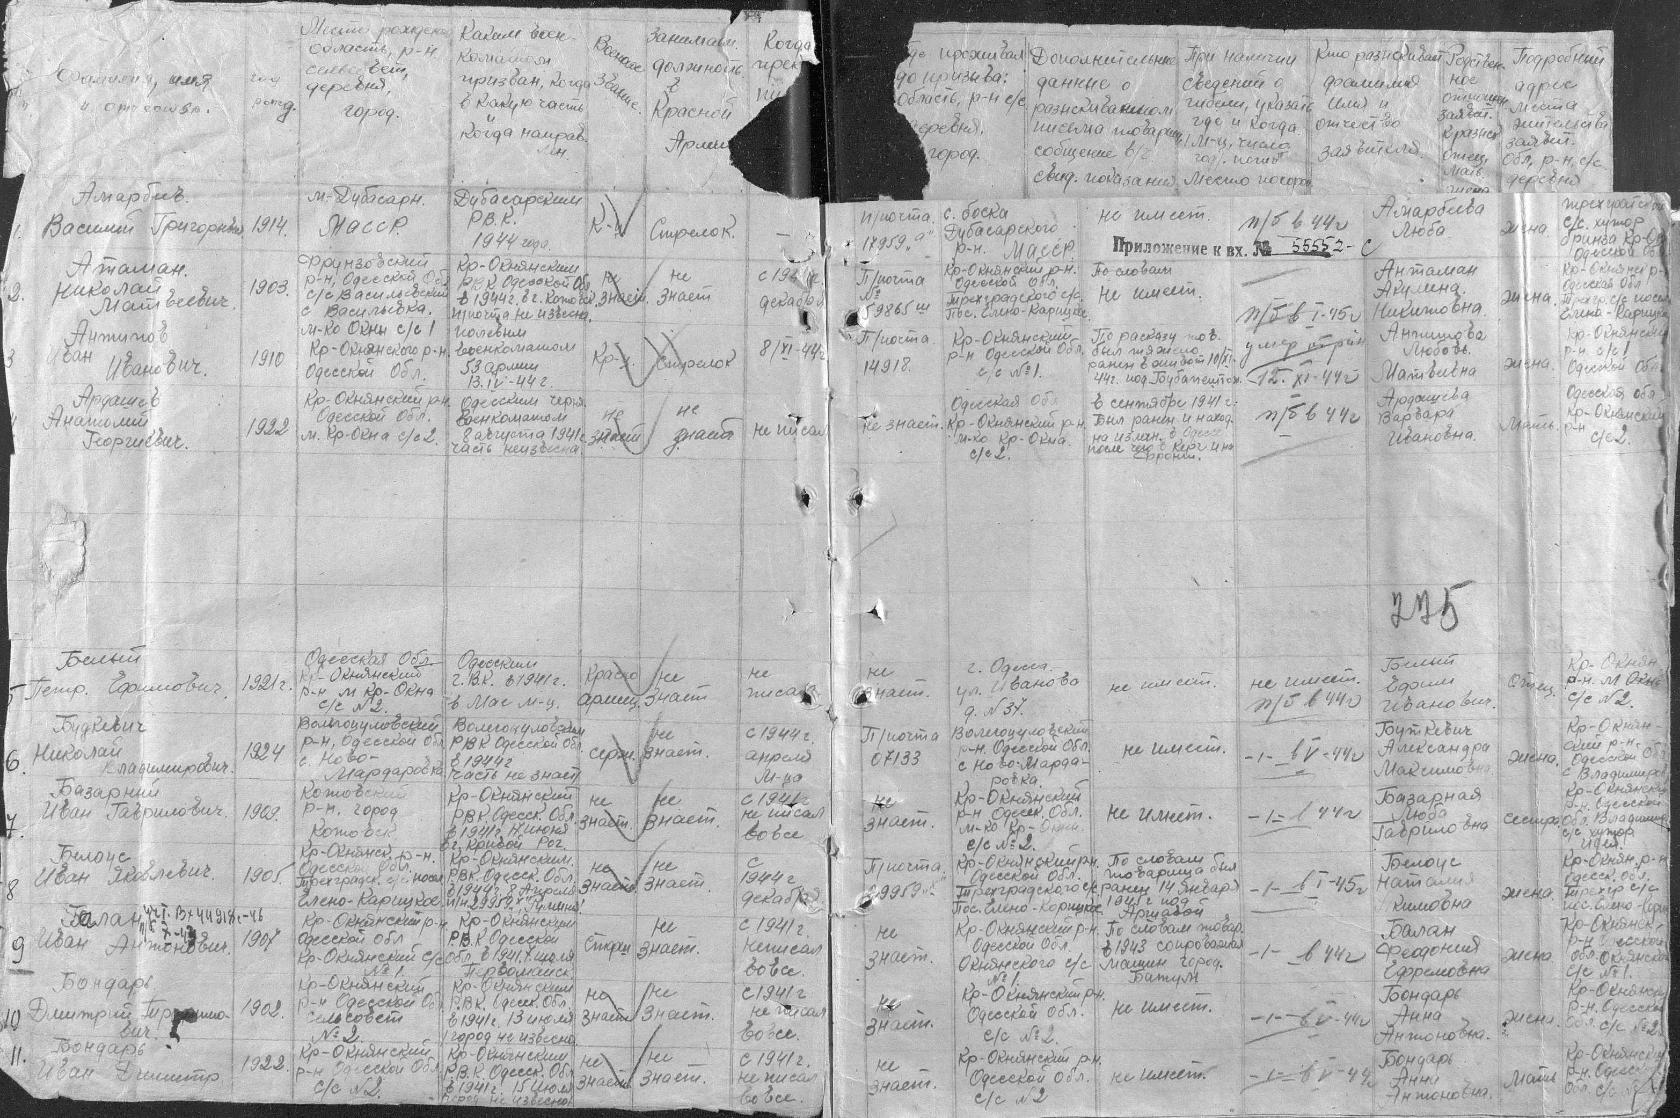 Фамилия, имя
и отчество.
год
рожд.
Место рожден
область, р-н.
сельсовет,
деревня,
город.
Каким воен-
коматом
призван, когда
в какую часть
и
когда направ
лен.
Военное
звание.
Занимаем.
должность
в
Красной
Армии
Когда
прек
где проживал
до призыва:
область, р-н с/с
деревня.
город.
Дополнительные
данные о
разыскиваемом
письма товарищ
сообщение в/ч
свид. показания
При наличии
сведений о
гибели, указать
где и когда
М-ц, число
год. погиб
Место похорон
Кто разыскивает
фамилия
имя и
отчество
заявителя.
Родствен-
ное
отношен.
заявит.
к разыск
отец
мать
жена
Подробный
адрес
места
жительства
заявит.
Обл, р-н, с/с
деревня
1.
Амарбив.
Василий Григорьевич
1914.
м-Дубасары.
МАССР.
Дубасарским
РВК.
1944 года.
К-ц
Стрелок.
—
п/почта.
17959 „а"
с. боска
Дубасарского
р-н. МАССР.
не имеет.
п/б в 44г
Приложение к вх. № 55552-с
Амарбива
Люба
жена.
с/с. хутор
Одесской обл
2.
Атаман.
Николай
Матвеевич.
1903.
Фрунзовский
р-н, Одесской Обл
с/с Васильевский
с Васильевка.
Кр-Окнянским
РВК Одесской Обл
в 1944г. в г. Котовск.
п/почта не известна.
не
знает.
не
знает
с 1944г
декабря
П/почта
№
59865 ш
Кр-Окнянский р-н.
Одесской обл.
Трехградского с/с.
Пос. Елено-Карицкое.
По словам
не имеет.
п/б в I-45г
Антаман
Акулина.
Никитовна.
жена.
Кр-Окнянс р-н
Одесской Обл
Трехгр. с/с посел
Елено-Карицк
3
Антипов
Иван
Иванович.
1910
м-ко Окны с/с 1
Кр-Окнянского р-н.
Одесской Обл.
полевым
военкоматом
53 армии
13.IV-44г.
Кр-ц
Стрелок
8/XI-44г
П/почта
14918.
Кр-Окнянский.
р-н Одесской Обл.
с/с №1.
По расказу тов.
был тяжело
ранен в живот 10/XI-
44г. под Будапештом.
умер от ран
12. XI-44г
Антипова
Любовь.
Матвивна
жена.
Кр-Окнянский
р-н с/с 1
Одесской Обл.
4
Ардашев
Анатолий
Георгиевич.
1922
Кр-Окнянский р-н
Одесской Обл.
м. Кр-Окна с/с 2.
Одесским черн.
военкоматом
8 августа 1941г.
часть неизвесна
не
знает
не
знает
не писал
не знает.
Одесская Обл
Кр-Окнянский р-н.
м-ко Кр-Окна.
с/с 2.
в сентябре 1941г.
Был ранен и наход.
на излеч. в Одессе
после чего в Керч и на
фронт.
п/б в 44г
Ардашева
Варвара
Ивановна.
Мать.
Одесская обл
Кр-Окнянский
р-н
с/с 2.
275
5
Белый
Петр. Ефимович.
1921г.
Одесская Обл
Кр-Окнянский
р-н м Кр-Окна
с/с №2.
Одесским
г. В.К. в 1941г.
в Мае м-ц.
Красно
армеец
не
знает
не
писал
не
знает.
г. Одесса.
ул. Иваново
д. №37.
не имеет.
не имеет.
п/б в 44г
Белый
Ефим
Иванович.
Отец.
Кр-Окнян
р-н. М Окны
с/с №2.
6.
Будкевич
Николай
Владимирович.
1924
Волегоцуловский
р-н, Одесской Обл
с. Ново-
Мардаровка
Волегоцуловским
РВК Одесской Обл.
в 1944г
часть не знает
серж.
не
знает.
с 1944г.
апреля
м-ца
П/почта
07133
Волегоцуловский
р-н. Одесской Обл.
с Ново-Марда-
ровка.
не имеет.
-1- в V-44г
Буткевич
Александра
Максимовна
жена.
Кр-Окнян-
ский р-н.
Одесской Обл
с Владимиров
7.
Базарный
Иван Гаврилович.
1909.
Котовский
р-н. город
Котовск
Кр-Окнянский
РВК Одесск. Обл.
в 1941г. 14 июня
в г. Кривой Рог.
не
знает.
не
знает.
с 1941г
не писал
вовсе
не
знает.
Кр-Окнянский
р-н Одесск. Обл.
м-ко Кр-Окны.
с/с №2.
не имеет.
-1- в 44г
Базарная
Люба
Гавриловна
сестра
Кр-Окнянский
р-н. Одесской
с/с хутор
8
Белоус
Иван Яковлевич.
1905.
Кр-Окнянск. р-н.
Одесской Обл.
Трехградск. с/с посел
Елено-Карицкое
Кр-Окнянским.
РВК. Одесск. Обл.
в 1944г. 8 Апреля
не
знает
не
знает.
с
1944г.
декабря
П/почта.
Кр-Окнянский р-н.
Одесской Обл.
Трехградского с/с
Пос. Елено-Корицкое
По словам
товарища был
ранен 14 января
1945г под
-1- в I-45г
Белоус
Наталия
Якимовна
жена
Кр-Окнян. р-н
Одесск. обл.
Трехгр с/с
9
Балан
Иван Антонович.
1907
Кр-Окнянский р-н
Одесской обл
Кр-Окнянский с/с
№1.
Кр-Окнянским
Р.В.К. Одесской
обл. в 1941, 7 июля
Первомайск.
Стрел
не
знает.
с 1941г.
не писал
вовсе.
не
знает.
Кр-Окнянский р-н.
Одесской Обл.
Окнянского с/с
№1.
По словам товар.
в 1943 сопровожал
Машин город.
Батум
-1- в 44г
Балан
Феодония
Ефремовна
жена.
Кр-Окнянск.
р-н Одесской
обл. Окнянско
с/с №1.
10
Бондарь
Дмитрий
вич.
1902.
Кр-Окнянский
р-н Одесской Обл
сельсовет
№2.
Кр-Окнянским
Р.В.К. Одесск. Обл.
в 1941г. 13 июля
город не известн
не
знает
не
знает.
с 1941г
не писал
вовсе.
не
знает.
Кр-Окнянский р-н.
Одесской Обл.
с/с №2.
не имеет.
-1- в V-44г
Бондарь
Анна
Антоновна.
жена.
Кр-Окнянс
р-н. Одесской
Обл. с/с №2
11.
Бондарь
Иван Димитр
1922.
Кр-Окнянский.
р-н Одесской Обл
с/с №2.
Кр-Окнянским
Р.В.К. Одесск. Обл.
в 1941г. 15 июля
город не известно
не
знает
не
знает.
с 1941г.
не писал
вовсе.
не
знает.
Кр-Окнянский р-н.
Одесской Обл.
с/с №2
не имеет.
-1- в V-44
Бондарь
Анна
Антоновна.
Мать
Кр-Окнянский
р-н. Одесск
обл. с/с